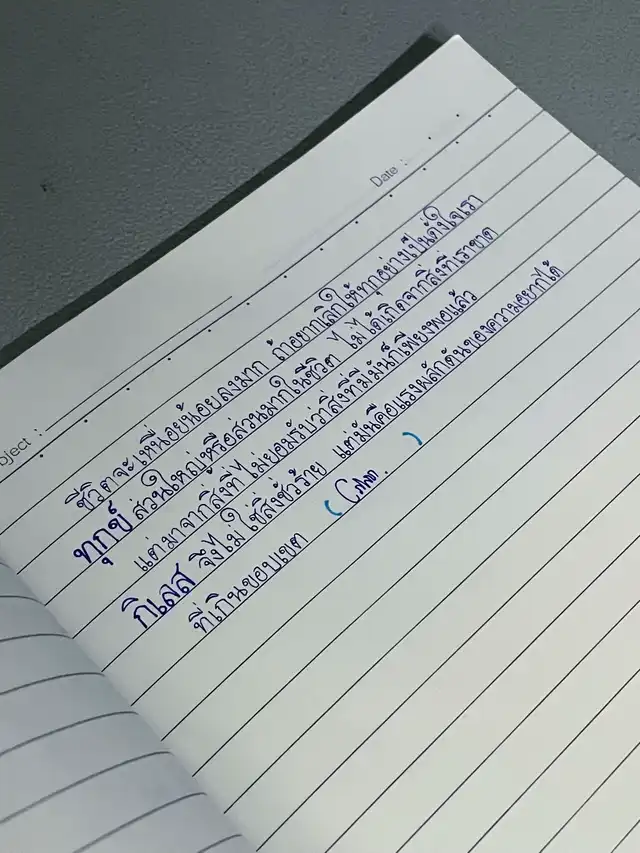 Date :
bject :
ชีวิตจะเหนื่อยน้อยลงมาก ถ้าอยากเลิกให้ทุกอย่างเป็นดั่งใจเรา
ทุกข์ ส่วนใหญ่หรือส่วนมากในชีวิต ไม่ได้เกิดจากสิ่งที่เราขาด
แต่มาจากสิ่งที่ไม่ยอมรับว่าสิ่งที่มีมันก็เพียงพอแล้ว
กิเลส จึงไม่ใช่สิ่งชั่วร้าย แต่มันคือแรงผลักดันของความอยากได้
ที่เกินขอบเขต ( )